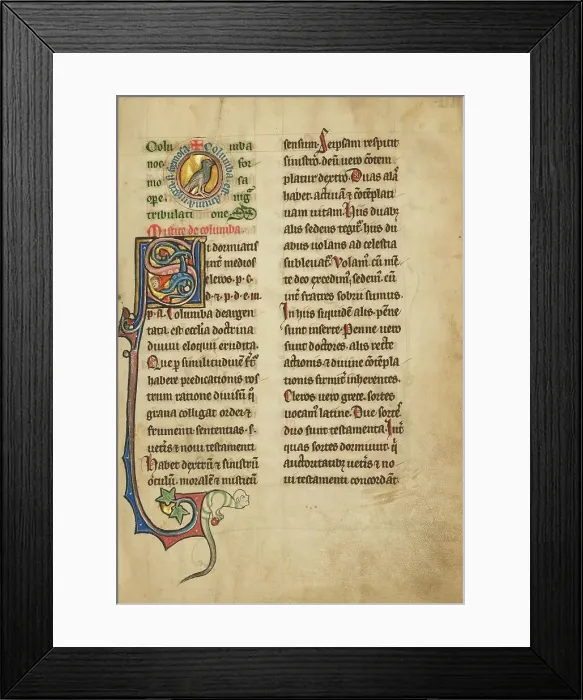 Colu mba
noe for
mo sa
ope mg
tribulati one
Mistice de columba.
Si dormiatis
int medios
cleros. p. c.
d. ⁊ p. d. e. m.
p. a. Columba deargen
tata. est ecclia doctrina
diuini eloquii erudita.
Que p similitudine
habere predicationis ros
trum ratione diuisu q
grana colligat ordei ⁊
frumenti sententias. s.
ueteris ⁊ noui testamenti
Habet dextru ⁊ sinistru
oculu. morale ⁊ misticu
sensum. Seipsam respicit
sinistro. deu uero cotem
platur dextro. Duas alas
habet. actiua ⁊ coteplati
uam uitam. Hiis duab;
alis sedens tegit. hiis du
abus uolans ad celestia
subleuat. Volam cu me
te deo excedim. sedem cu
int fratres sobrii sumus.
In hiis siquide alis. pene
sunt inserte. Penne uero
sunt doctores. alis recte
actionis ⁊ diuine cotepla
tionis firmit inherentes.
Cleros uero grece. sortes
uocant latine. Due sortes
duo sunt testamenta. Int
quas sortes dormiunt. q
auctoritatib; ueteris ⁊ no
ui testamenti concordat